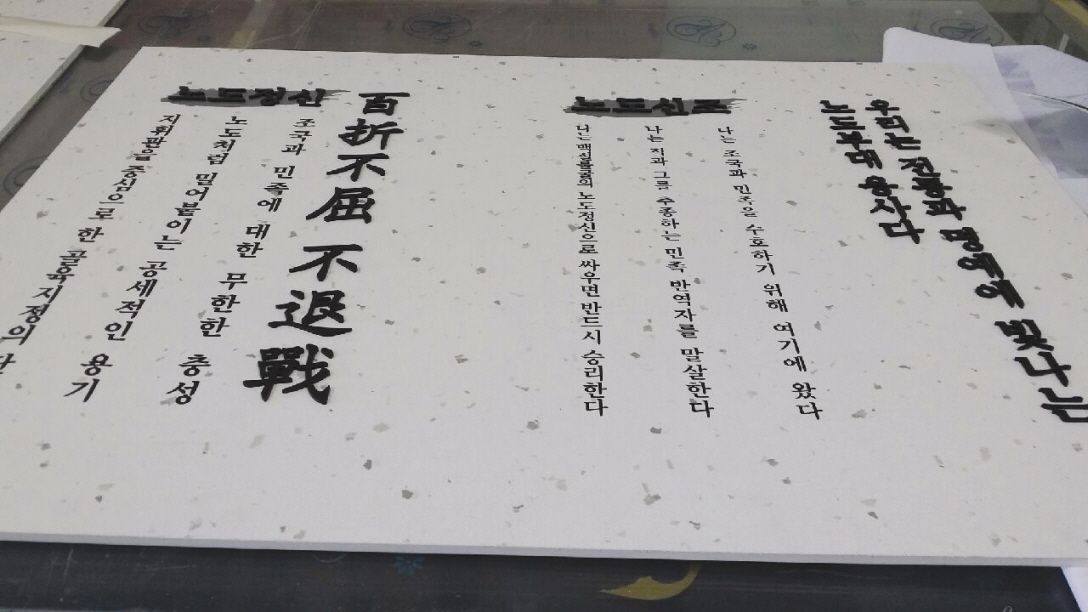 우리는 전통과 명예에 빛나는
노도부대 용사다
노도신조
나는 조국과 민족을 수호하기 위해 여기에 왔다
나는 적과 그를 추종하는 민족 반역자를 말살한다
나는 백절불굴의 노도정신으로 싸우면 반드시 승리한다
百折不屈 不退戰
노도정신
조국과 민족에 대한 무한한 충성
노도처럼 밀어붙이는 공세적인 용기
지휘관을 중심으로 한 골육지정의